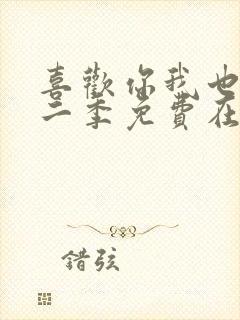 喜歡你我也
二季免費在
錯弦